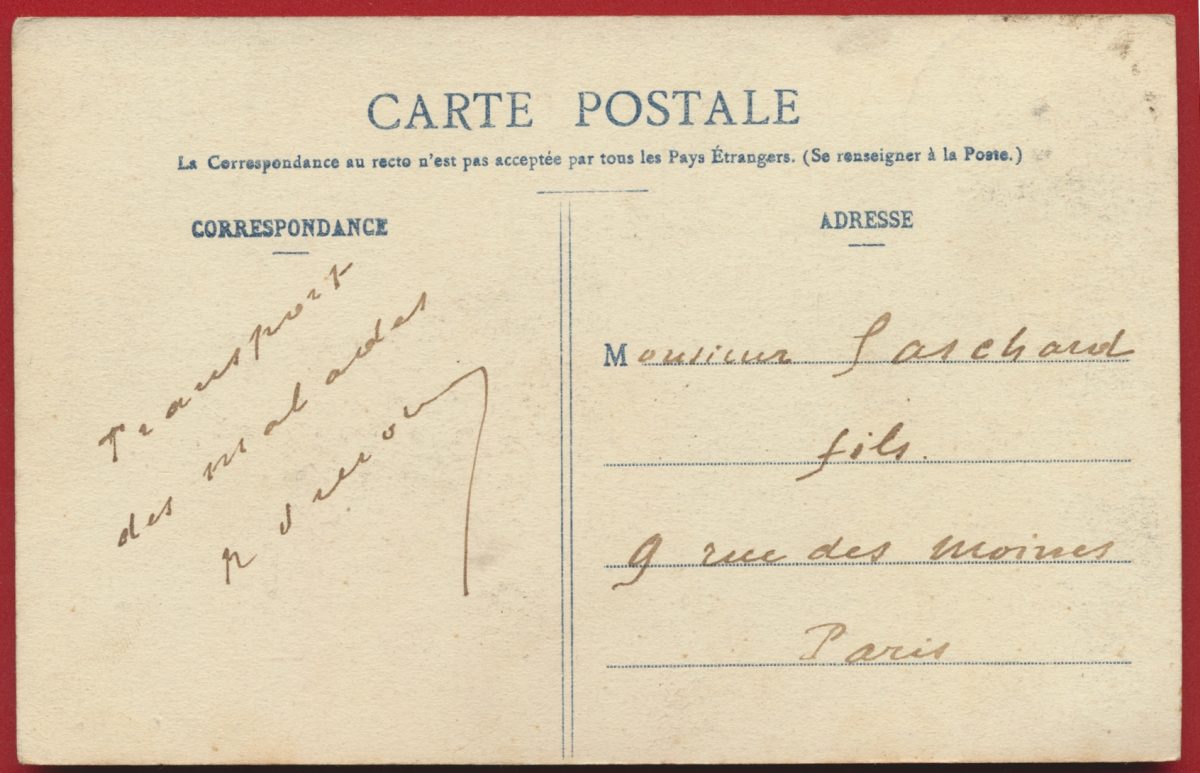 CARTE POSTALE
La Correspondance au recto n'est pas acceptée par tous les Pays Étrangers. (Se renseigner à la Poste.)
CORRESPONDANCE
Transport
des malades
ADRESSE
Monsieur
fils.
9 rue des moines
Paris